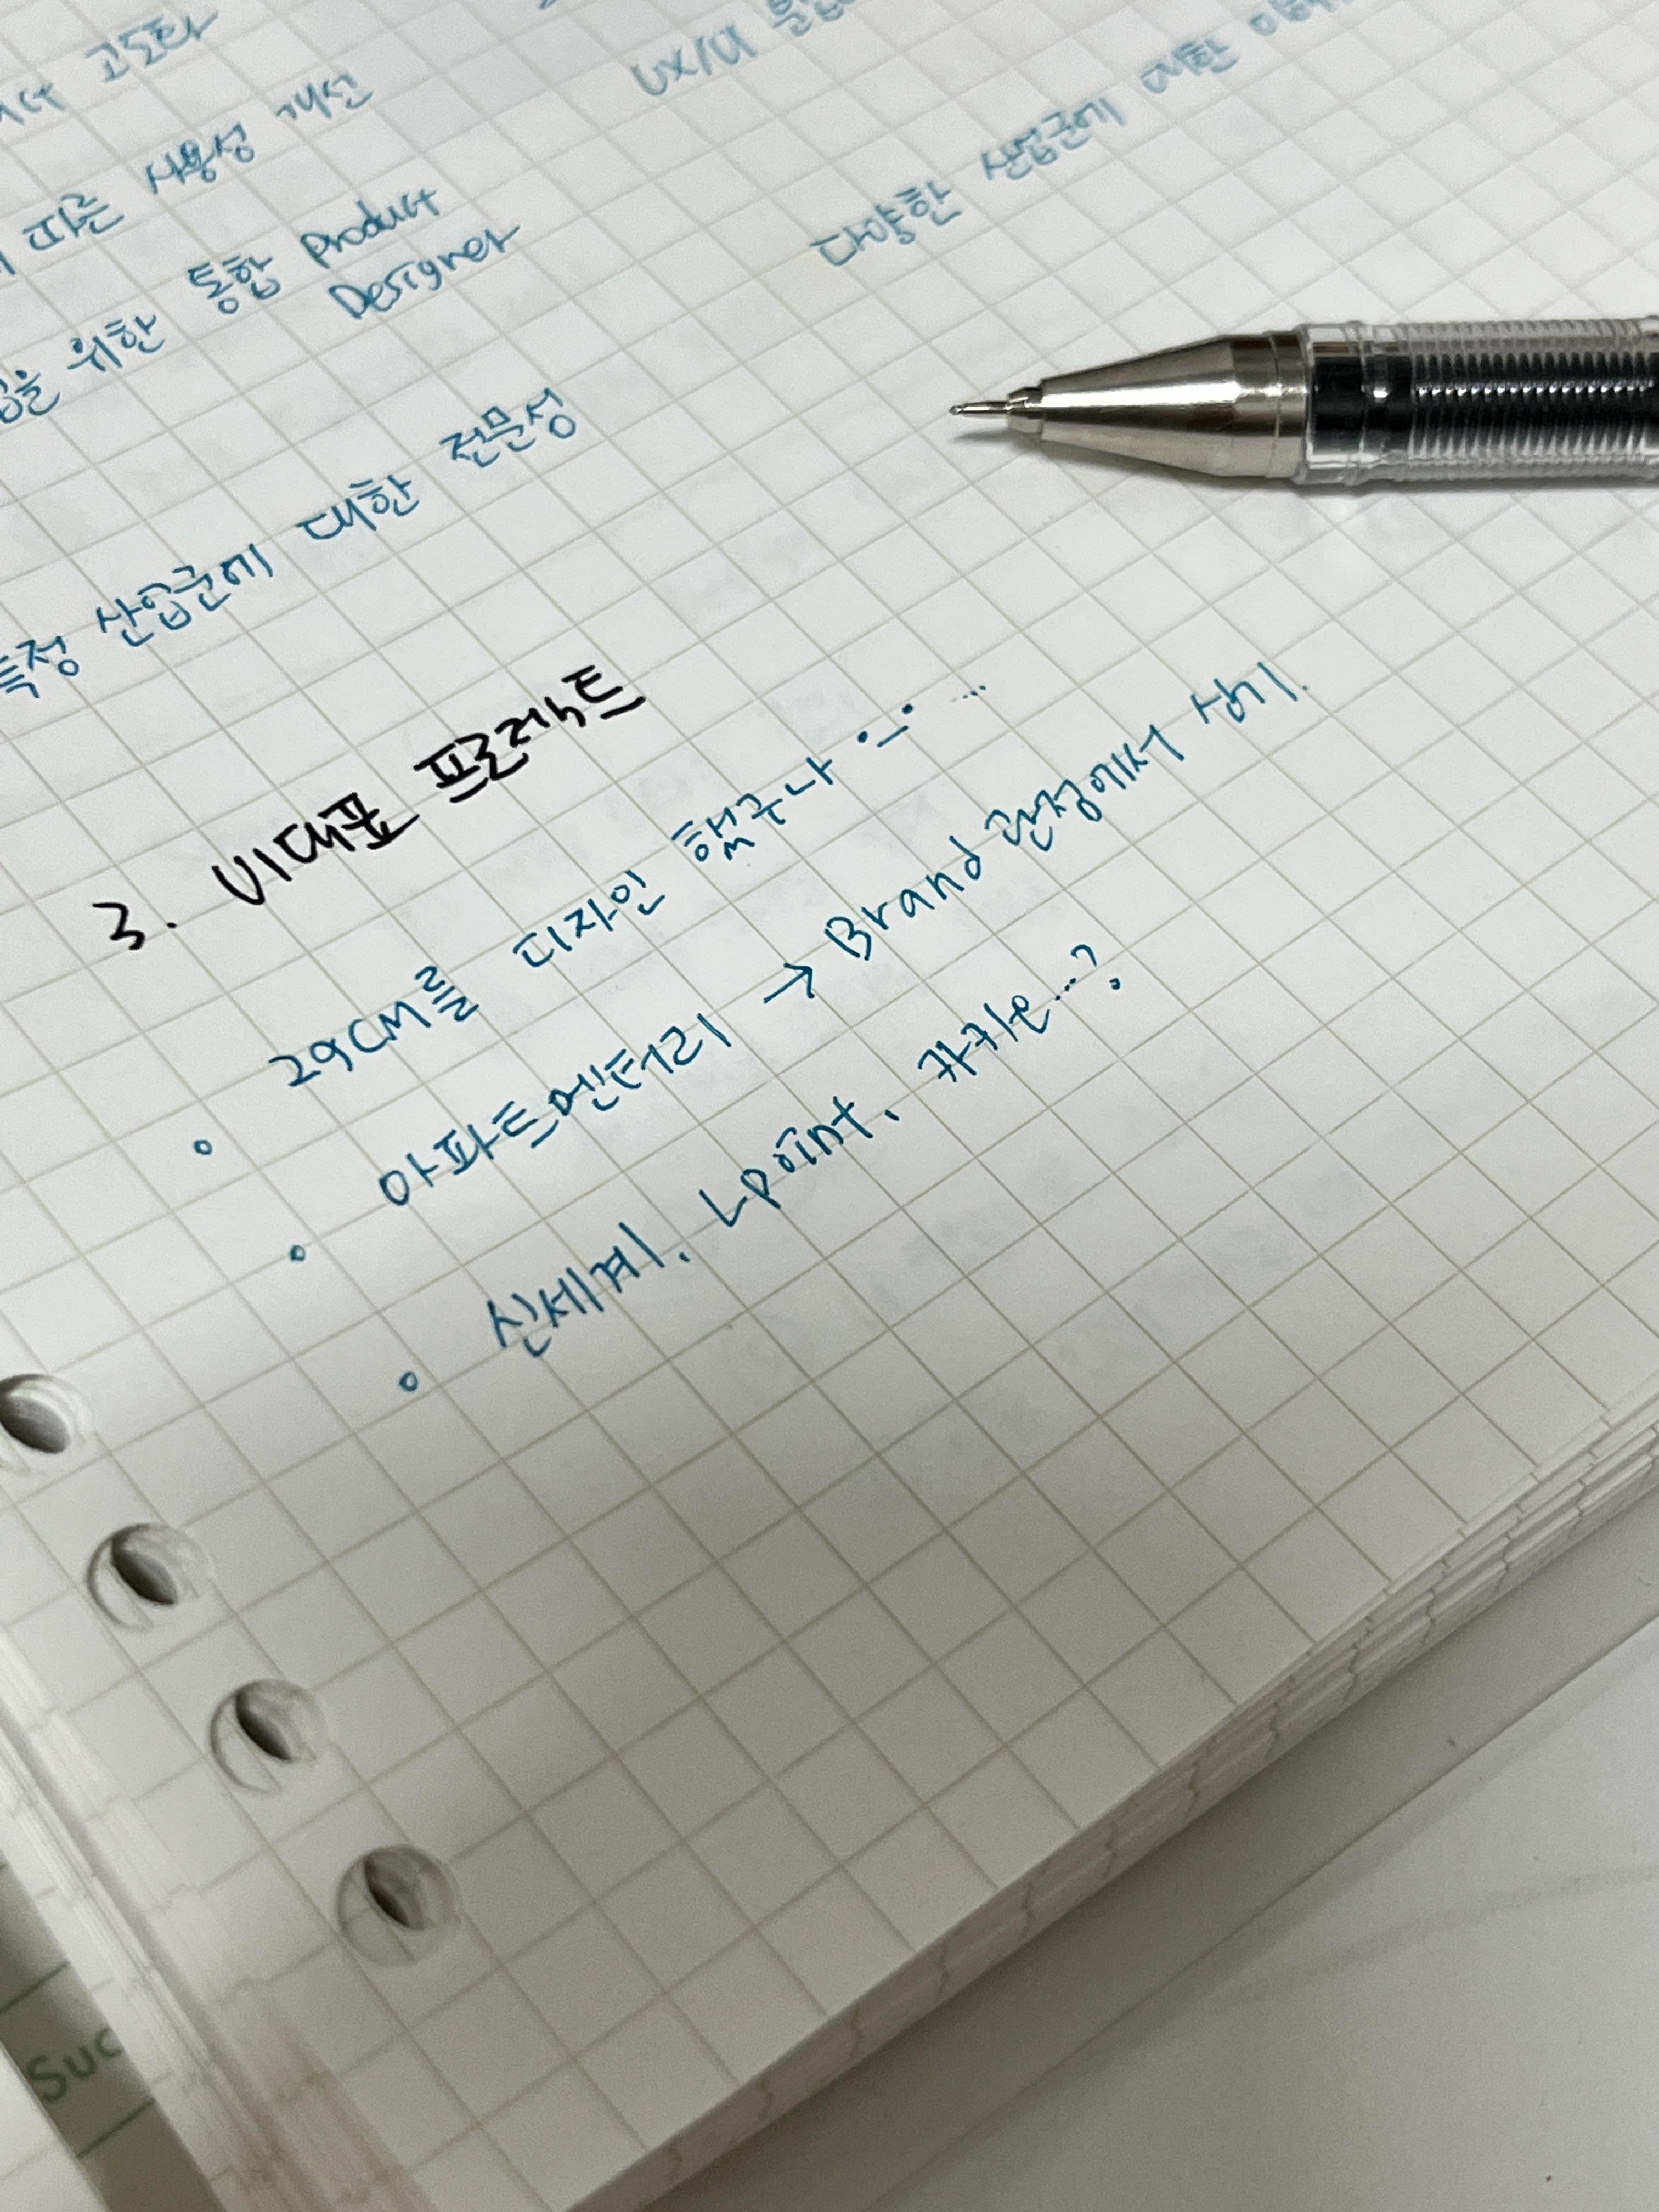 고도화
UX/UI
따른 사용성 개선
다양한 산업군에 대한
위한 통합 Product
Designer
특정 산업군에 대한 전문성
3. 비대표 프로젝트
• 29CM를 디자인 했구나 •_• ...
• 아파트멘터리 → Brand 관점에서 상기.
• 신세계, Lpoint, 카카오...?
Suc